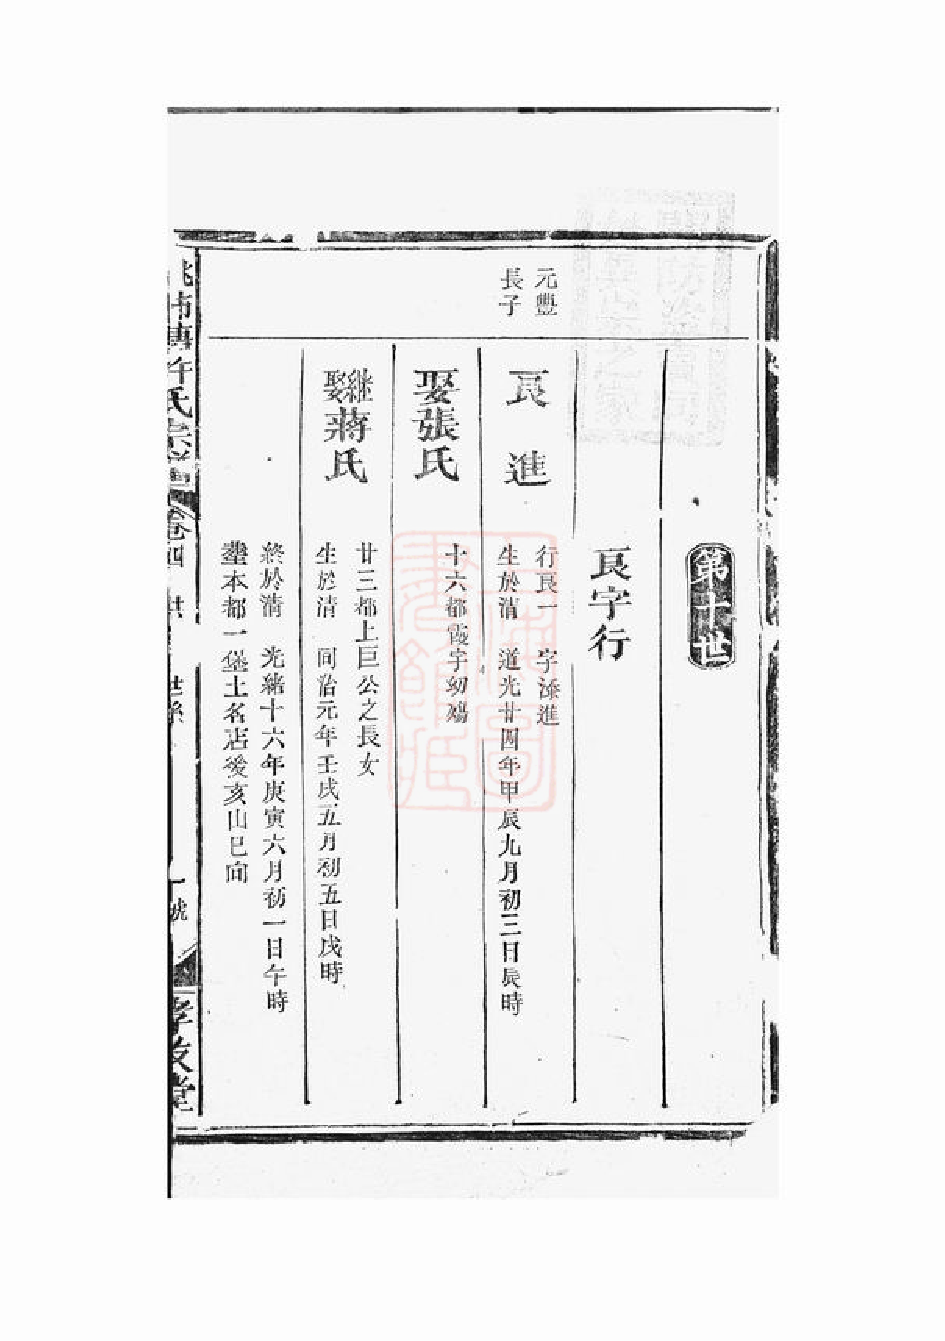 第十世
良字行
元豐
長子
良進
行良一 字添進
生於清 道光廿四年甲辰九月初三日辰時
娶張氏
十六都霞宇幼殤
繼娶蔣氏
廿三都上巨公之長女
生於清 同治元年壬戌五月初五日戌時
終於清 光緒十六年庚寅六月初一日午時
塟本都一堡土名店後亥山巳向
氏宗譜 卷四 世系 一號 孝敬堂